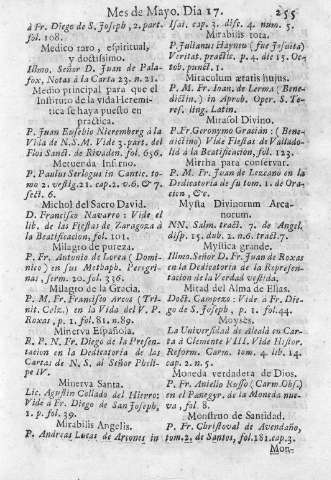 Mes de Mayo. Dia 17.
255
à Fr. Diego de S. Joseph, 2. part.
fol. 108.
Medico raro, espiritual,
y doctissimo.
Illmo. Señor D. Juan de Palafox,
Notas à la Carta 23. n. 21.
Medio principal para que el
Instituto de la vida Heremitica
se haya puesto en
practica.
P. Juan Eusebio Nieremberg à la
Vida de N.S.M. Vide 3. part. del
Flos Sanct. de Rivaden. fol. 656.
Mecuerda Infierno.
P. Paulus Serlogus in Cantic. tomo
2. vestig. 21. cap. 2. v. 6. & 7.
sect. 6.
Michol del Sacro David.
D. Francisco Navarro: Vide el
lib. de las Fiestas de Zaragoza à
la Beatificacion, fol. 101.
Milagro de pureza.
P. Fr. Antonio de Lorea (Dominico)
en sus Methaph. Peregrinas,
serm. 20. fol. 336.
Milagro de la Gracia.
P. M. Fr. Francisco Arcos (Trinit.
Celz.) en la Vida del V. P.
Roxas, p. 1. fol. 81. n. 89.
Minerva Española.
R. P. N. Fr. Diego de la Presentacion
en la Dedicatoria de las
Cartas de N. S. al Señor Phelipe
IV.
Minerva Santa.
Lic. Agustin Collado del Hierro:
Vide à Fr. Diego de San Joseph,
1. p. fol. 39.
Mirabilis Angelis.
P. Andreas Lucas de Arcones in
Isai. cap. 3. disc. 4. num. 5.
Mirabilis tota.
P. Julianus Hayneu (fue Jesuita)
Veritas. practic. p. 4. die 15. Octob.
punct. 1.
Miraculum ætatis hujus.
P. M. Fr. Joan. de Lerma (Benedictin.)
in Aprob. Oper. S. Teres.
ling. Latin.
Mirasol Divino.
P. Fr. Geronymo Gracian: (Benedictino)
Vide Fiestas de Valladolid
à la Beatificacion, fol. 123.
Mirrha para conservar.
P. M. Fr. Juan de Lezcano en la
Dedicatoria de su tom. 1. de Oracion,
&c.
Mysta Divinorum Arcanorum.
NN. Salm. tract. 7. de Angel.
disp. 15. dub. 2. n. 6. tract. 7.
Mystica grande.
Illmo. Señor D. Fr. Juan de Roxas
en la Dedicatoria de la Representacion
de la Verdad vestida.
Mitad del Alma de Elias.
Doct. Campezo: Vide à Fr. Diego
de S. Joseph, p. 1. fol. 44.
Moysès.
La Universidad de Alcalà en Carta
à Clemente VIII. Vide Histor.
Reform. Carm. tom. 4. lib. 14.
cap. 2. n. 5.
Moneda verdadera de Dios.
P. Fr. Aniello Rosso (Carm. Obs.)
en el Panegyr. de la Moneda nueva,
fol. 8.
Monstruo de Santidad.
P. Fr. Christoval de Avendaño,
tom. 2. de Santos, fol. 181. cap. 3.
Mon-